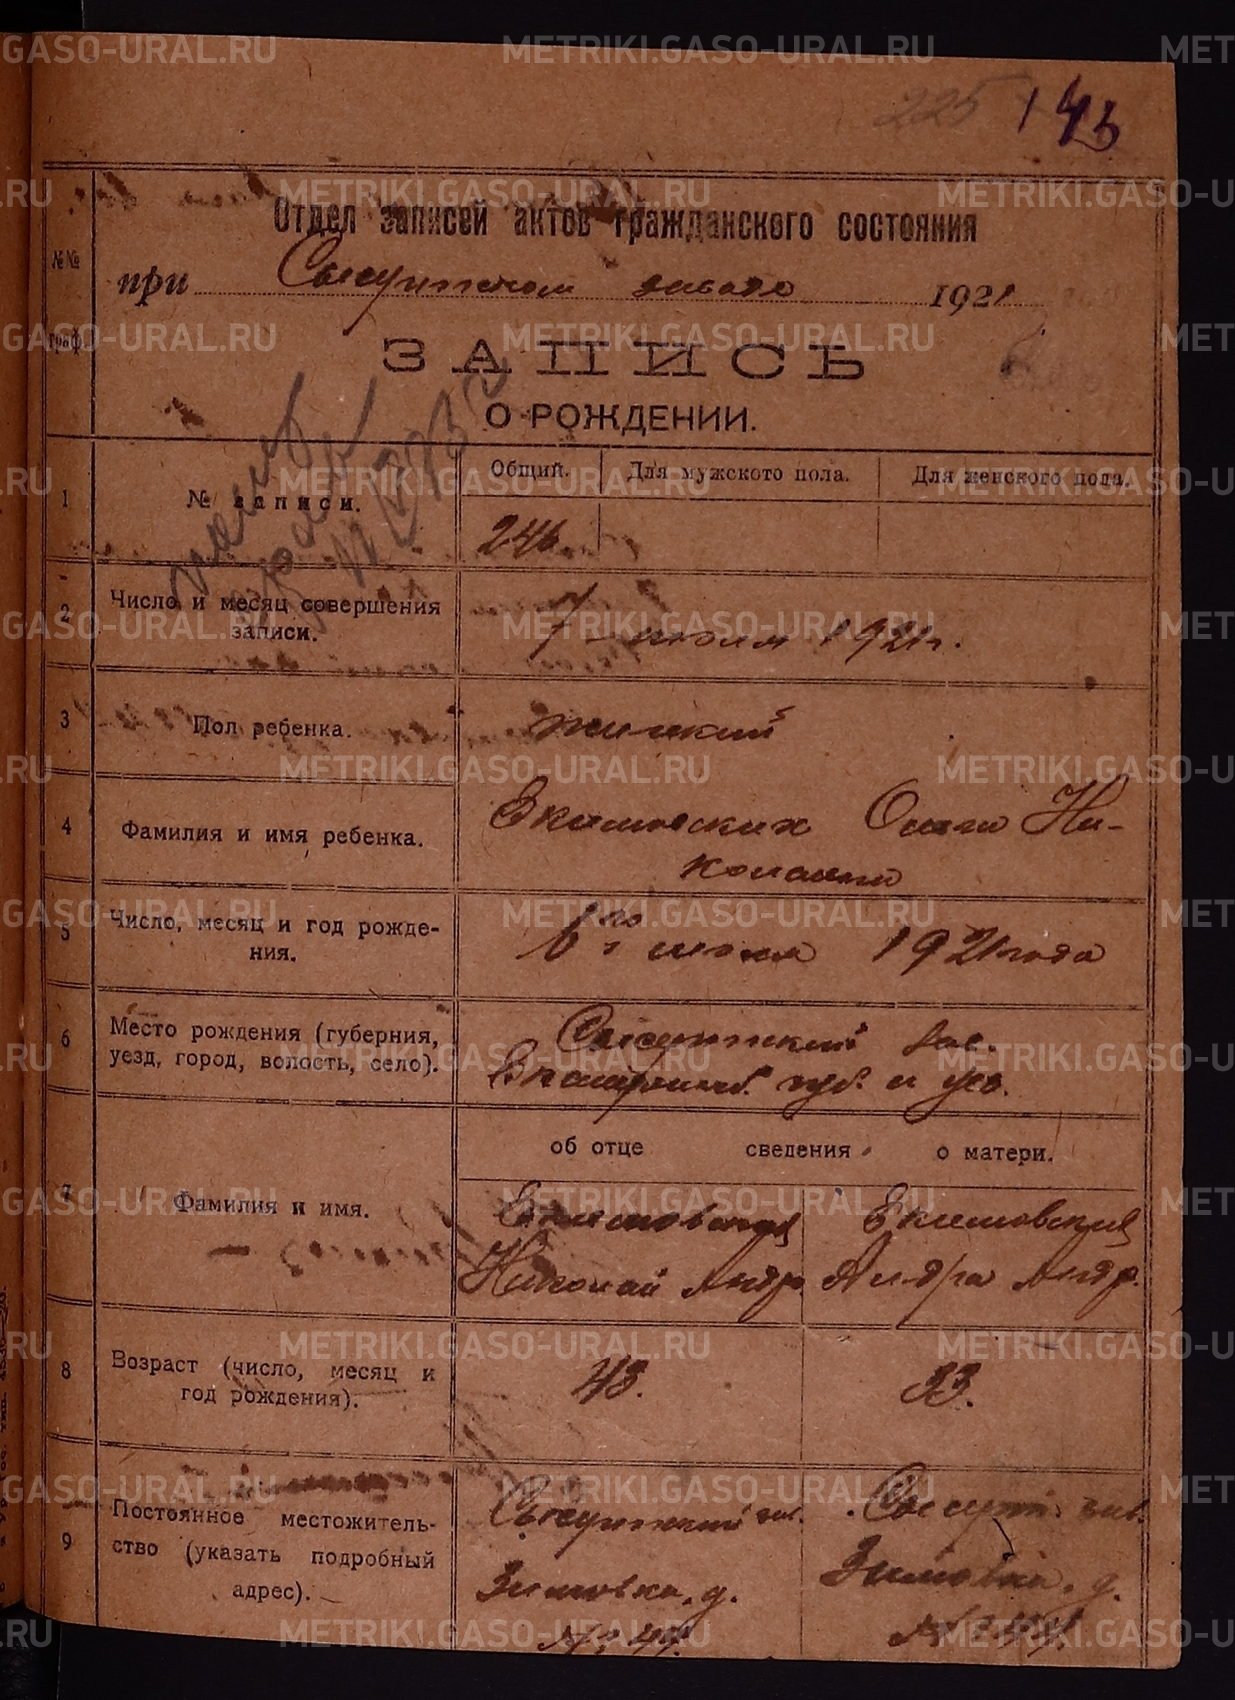 225 143
Отдел записей актов гражданского состояния
№№ граф.
при Сысертском заводе 1921
ЗАПИСЬ
О РОЖДЕНИИ.
1 № записи. Общий. Для мужского пола. Для женского пола.
246
2 Число и месяц совершения записи. 7 июля 1921 г.
3 Пол ребенка. женский
4 Фамилия и имя ребенка. Екимовских Ольга Ни-
колаевна
5 Число, месяц и год рожде-
ния. 6го июля 1921 года
6 Место рождения (губерния,
уезд, город, волость, село). Сысертский зав.
Екатеринб. губ. и уез.
об отце сведения о матери.
7 Фамилия и имя. Екимовский Екимовская
Николай Андр. Андр.
8 Возраст (число, месяц и
год рождения). 43. 33.
9 Постоянное местожитель-
ство (указать подробный
адрес). Сысертский зав. Сысерт. зав.
Зимовка, д. Зимовка, д.
№ 44. № 44.
METRIKI.GASO-URAL.RU